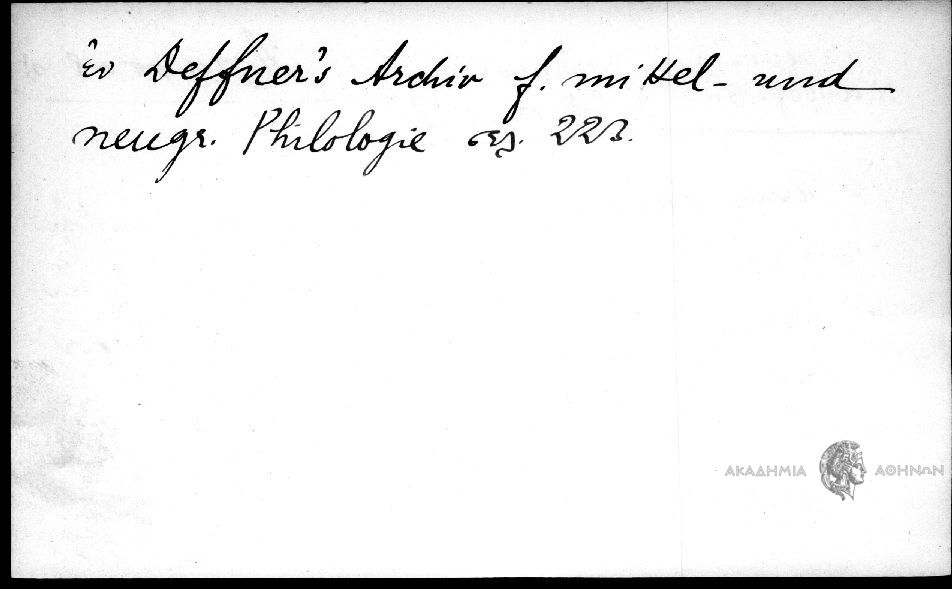 ἐν Deffner's Archiv f. mittel- und
neugr. Philologie σελ. 223.
ΑΚΑΔΗΜΙΑ ΑΘΗΝΩΝ